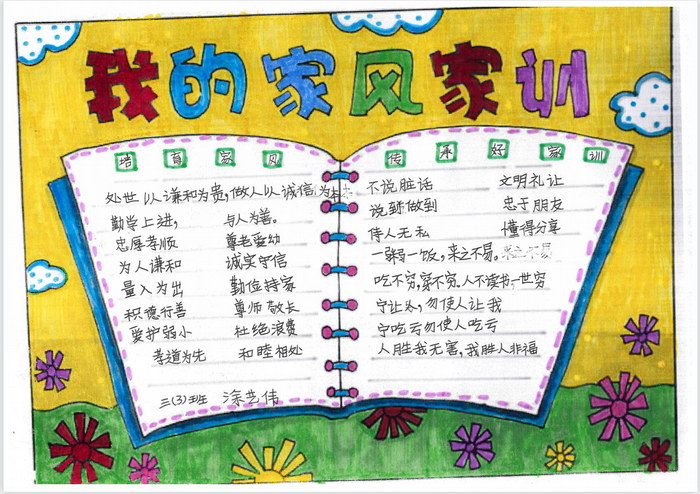 我的家风家训
培育家风
处世以人谦和为贵,做人以诚信为
勤学上进, 与人为善。
忠厚孝顺 尊老爱幼
为人谦和 诚实守信
量入为出 勤位持家
积德行善 尊师敬长
爱护弱小 杜绝浪费
孝道为先 和睦相处
三(3)班 涂艺伟
传承好家训
不说脏话 文明礼让
说到做到 忠于朋友
待人无私 懂得分享
一粥一饭,来之不易。
吃不穷,穿不穷。人不读书,一世穷
宁让人,勿使人让我
宁吃亏勿使人吃亏
人胜我无害,我胜人非福